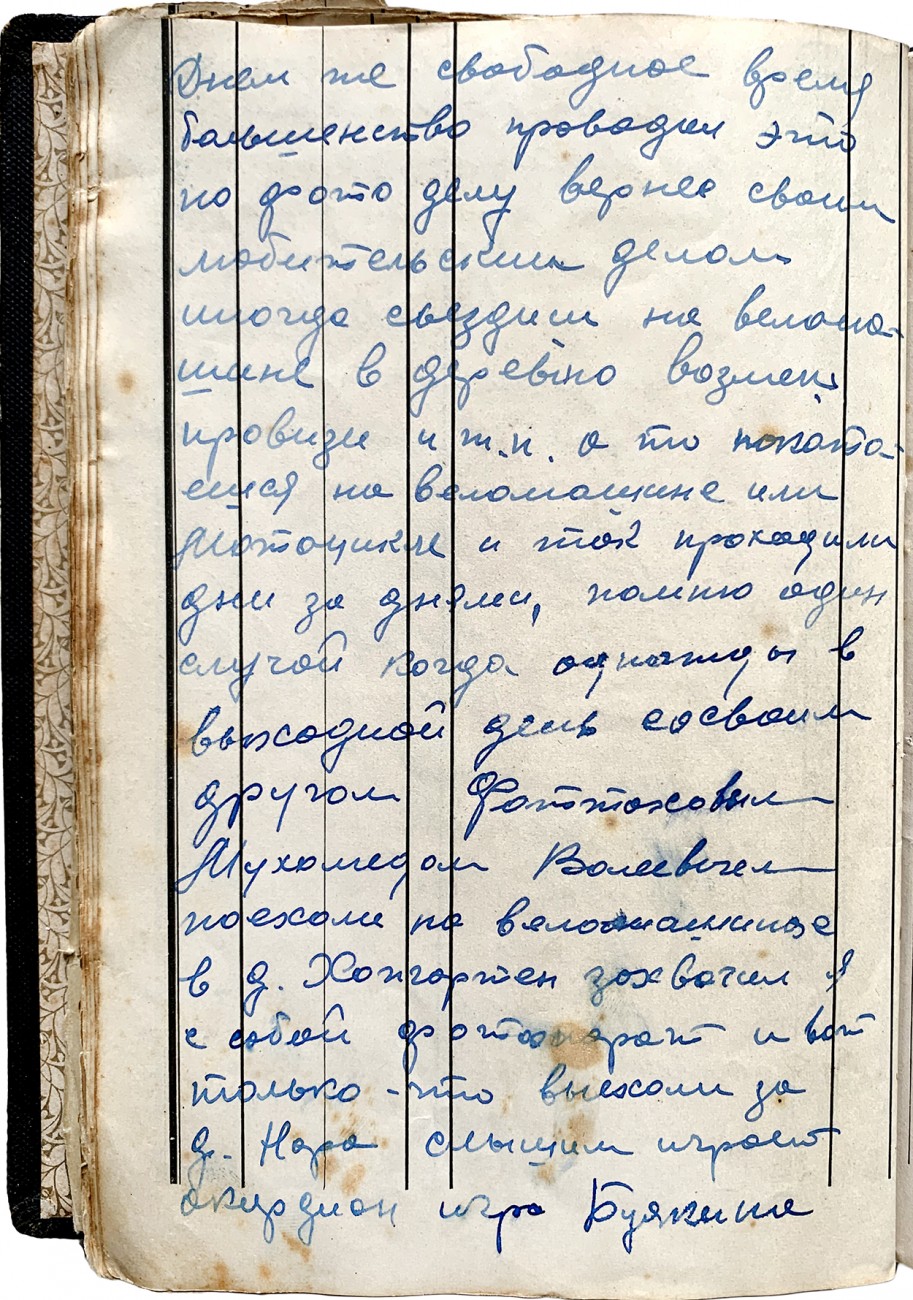 Днем же свободное время
большенство проводил это
по фото делу вернее своим
любительским делом
иногда сьездиш на велома-
шине в деревню возмеш
провизи и т.п. а то поката-
ешся на веломашине или
Мотоцикле и так проходили
дни за днями, помню один
случай когда однажды в
выходной день сосвоим
другом Фаттаховым
Мухомедом Валиевичем
поехали на веломашине
в д. Хонгартен захватил я
с собой фотоапарат и вот
только-что выехали за
д. Нора слышим играет
акардион игра Буякина